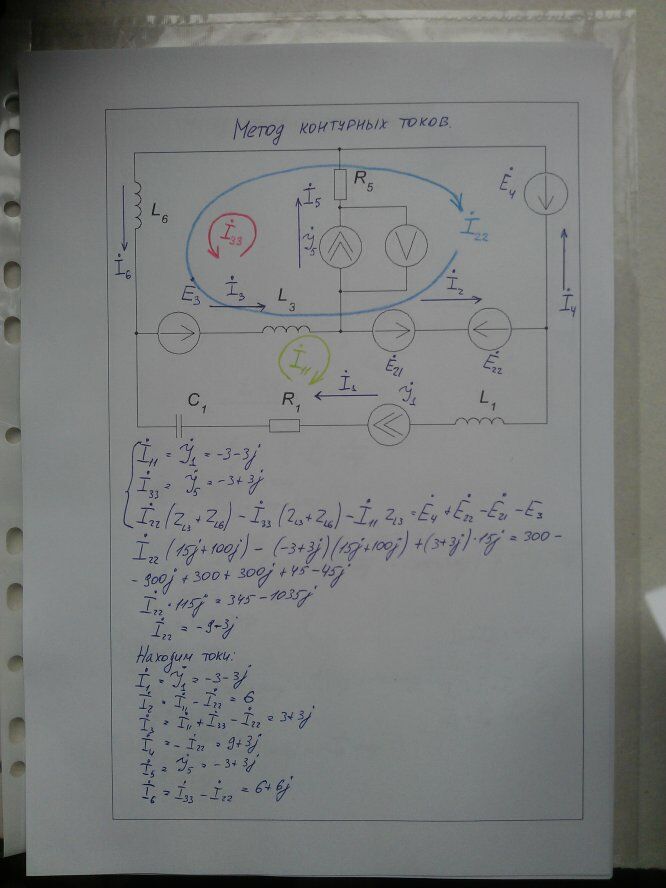 Метод контурных токов.
R5
Ė4
İ5
L6
İ33
J̇5
V
İ22
İ6
Ė3
İ3
L3
İ2
İ4
İ11
Ė21
Ė22
C1
R1
İ1
J̇1
L1
İ11 = J̇1 = -3-3j
İ33 = J̇5 = -3+3j
İ22 (ZL3 + ZL6) - İ33 (ZL3+ZL6) - İ11 ZL3 = Ė4 + Ė22 - Ė21 - Ė3
İ22 (15j+100j) - (-3+3j)(15j+100j) + (3+3j)·15j = 300 -
- 900j + 300 + 300j + 45 - 45j
İ22 · 115j = 345 - 1035j
İ22 = -9+3j
Находим токи:
İ1 = J̇1 = -3-3j
İ2 = İ11 - İ22 = 6
İ3 = İ11 + İ33 - İ22 = 3+3j
İ4 = - İ22 = 9+3j
İ5 = J̇5 = -3+3j
İ6 = İ33 - İ22 = 6+6j